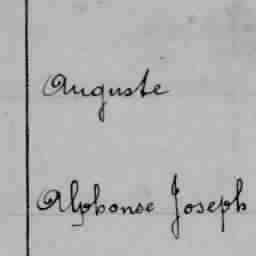 Auguste
Alphonse Joseph